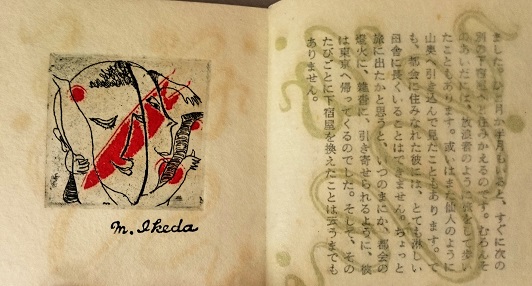 M. Ikeda
ましたが、ひと月か半月もいると、すぐに次の
別の下宿屋へと住みかえるのです。むろんそ
のあいだには、放浪者のように旅をして歩い
たこともあります。或いはまた仙人のように
山奥へ引き込んで見たこともあります。で
も、都会に住みなれた彼には、とても淋しい
田舎に長くいることはできません。ちょっと
旅に出たかと思うと、いつのまにか、都会の
燈火に、雑沓に、引き寄せられるように、彼
は東京へ帰ってくるのでした。そして、その
たびごとに下宿屋を換えたことは云うまでも
ありません。